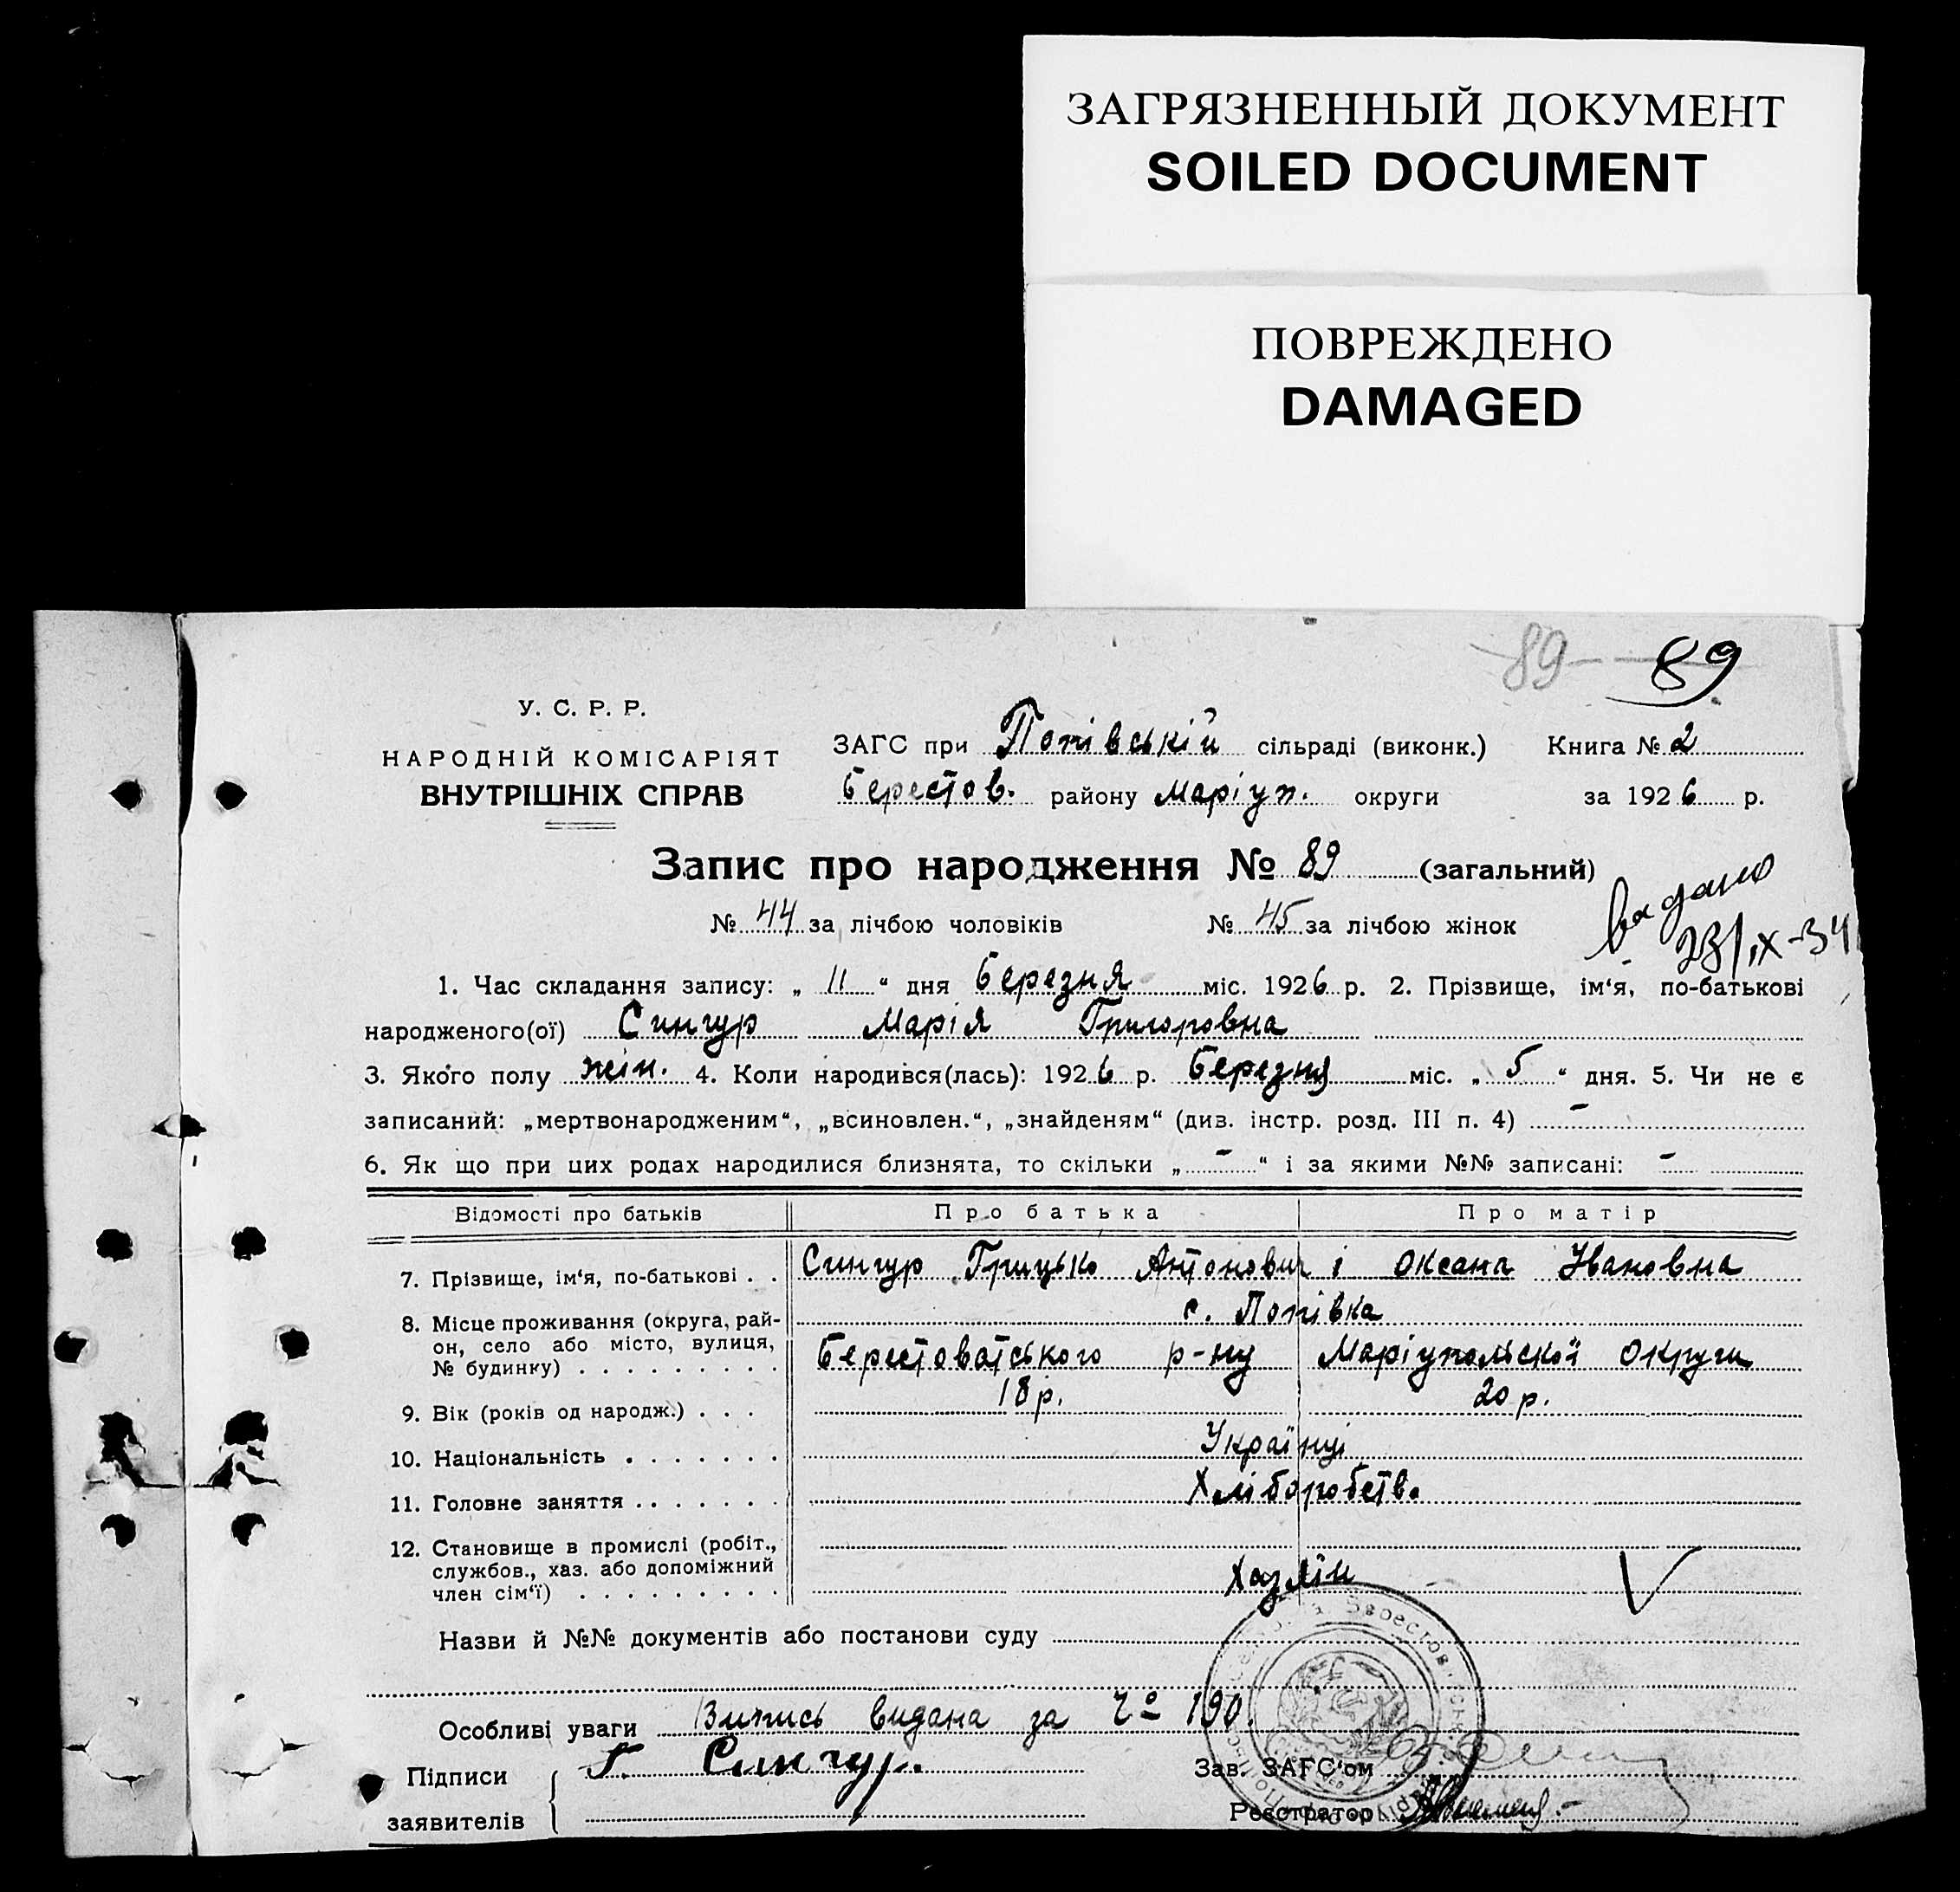 ЗАГРЯЗНЕННЫЙ ДОКУМЕНТ
SOILED DOCUMENT
ПОВРЕЖДЕНО
DAMAGED
89 89
У. С. Р. Р.
НАРОДНІЙ КОМІСАРІЯТ
ВНУТРІШНІХ СПРАВ
ЗАГС при Попівській сільраді (виконк.) Книга № 2
Берестов. району Маріуп. округи за 1926 р.
Запис про народження № 89 (загальний)
№ 44 за лічбою чоловіків № 45 за лічбою жінок
видано
23/IX-34
1. Час складання запису: „ 11 “ дня Березня міс. 1926 р. 2. Прізвище, ім‘я, по-батькові
народженого(ої) Сингур Марія Григоровна
3. Якого полу жін. 4. Коли народився(лась): 1926 р. Березня міс. „ 5 “ дня. 5. Чи не є
записаний: „мертвонародженим“, „всиновлен.“, „знайденям“ (див. інстр. розд. III п. 4) –
6. Як що при цих родах народилися близнята, то скільки „ – “ і за якими №№ записані: –
Відомості про батьків Про батька Про матір
7. Прізвище, ім‘я, по-батькові . . Сингур Грицько Антонович і Оксана Ивановна
8. Місце проживання (округа, рай- с. Попівка
он, село або місто, вулиця,
№ будинку) . . . . . . . . . Берестоватського р-ну Маріупольской округи
9. Вік (років од народж.) . . . 18 р. 20 р.
10. Національність . . . . . . . Українці
11. Головне заняття . . . . . . . Хліборобств.
12. Становище в промислі (робіт.,
службов., хаз. або допоміжний
член сім‘ї) . . . . . . . . . Хазяїн
Назви й №№ документів або постанови суду
Особливі уваги Випись видана за № 190
Підписи Г. Сингур.
заявителів
Зав. ЗАГС‘ом
Реєстратор